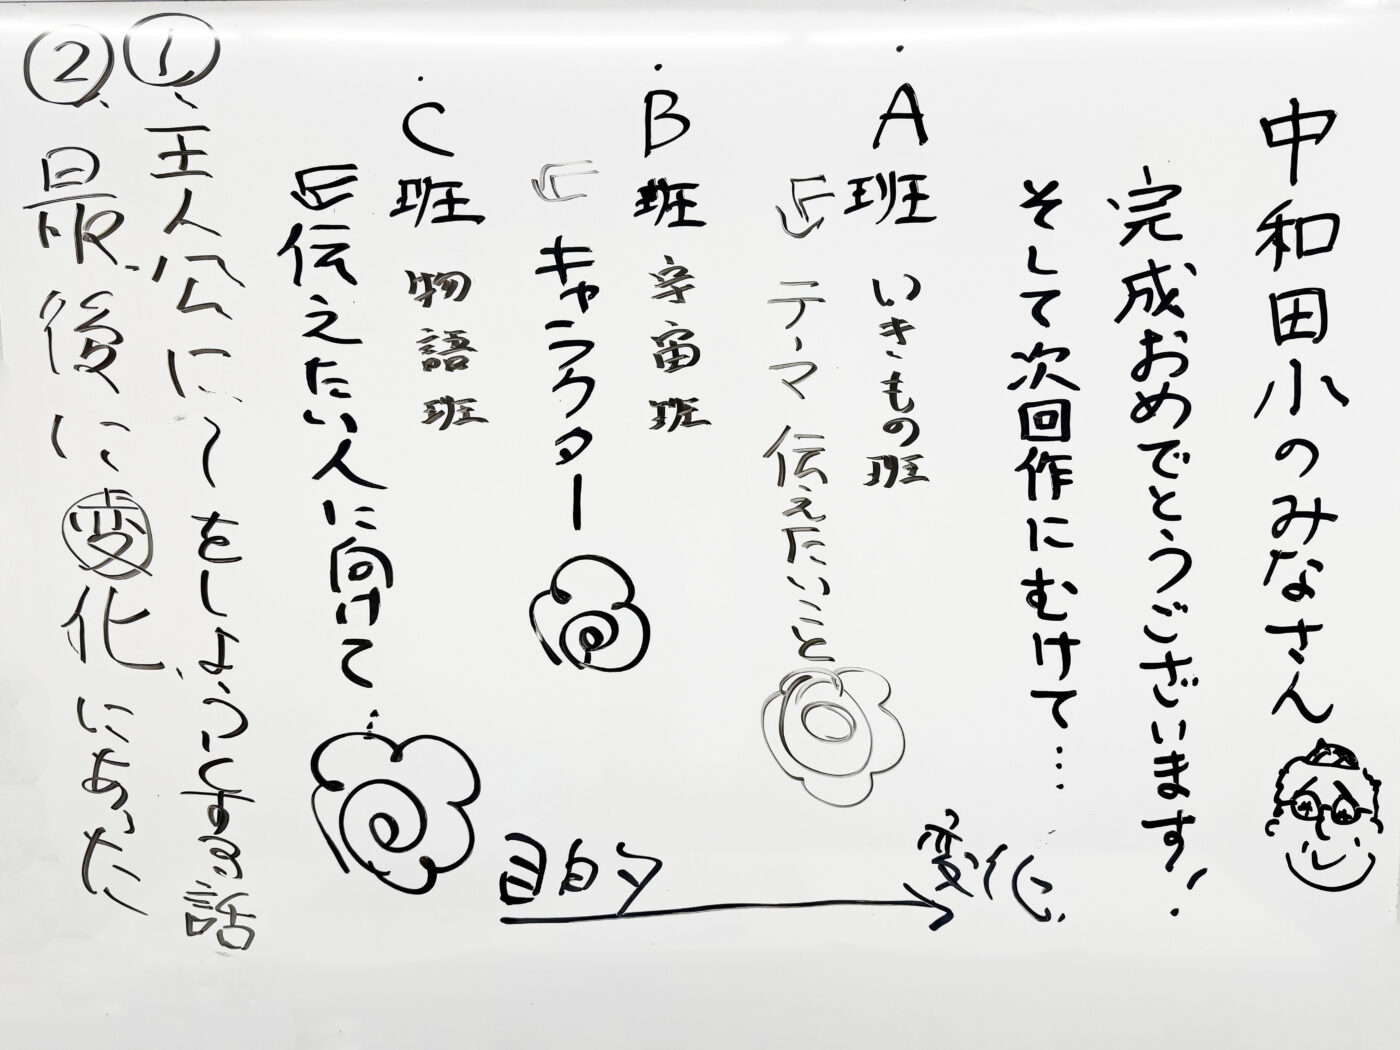 中和田小のみなさん
完成おめでとうございます!
そして次回作にむけて…
A班 いきもの班
テーマ 伝えたいこと
B班 宇宙班
キャラクター
C班 物語班
伝えたい人に向けて
目的
変化
①、主人公に〜をしようとする話
②、最後に変化にあった